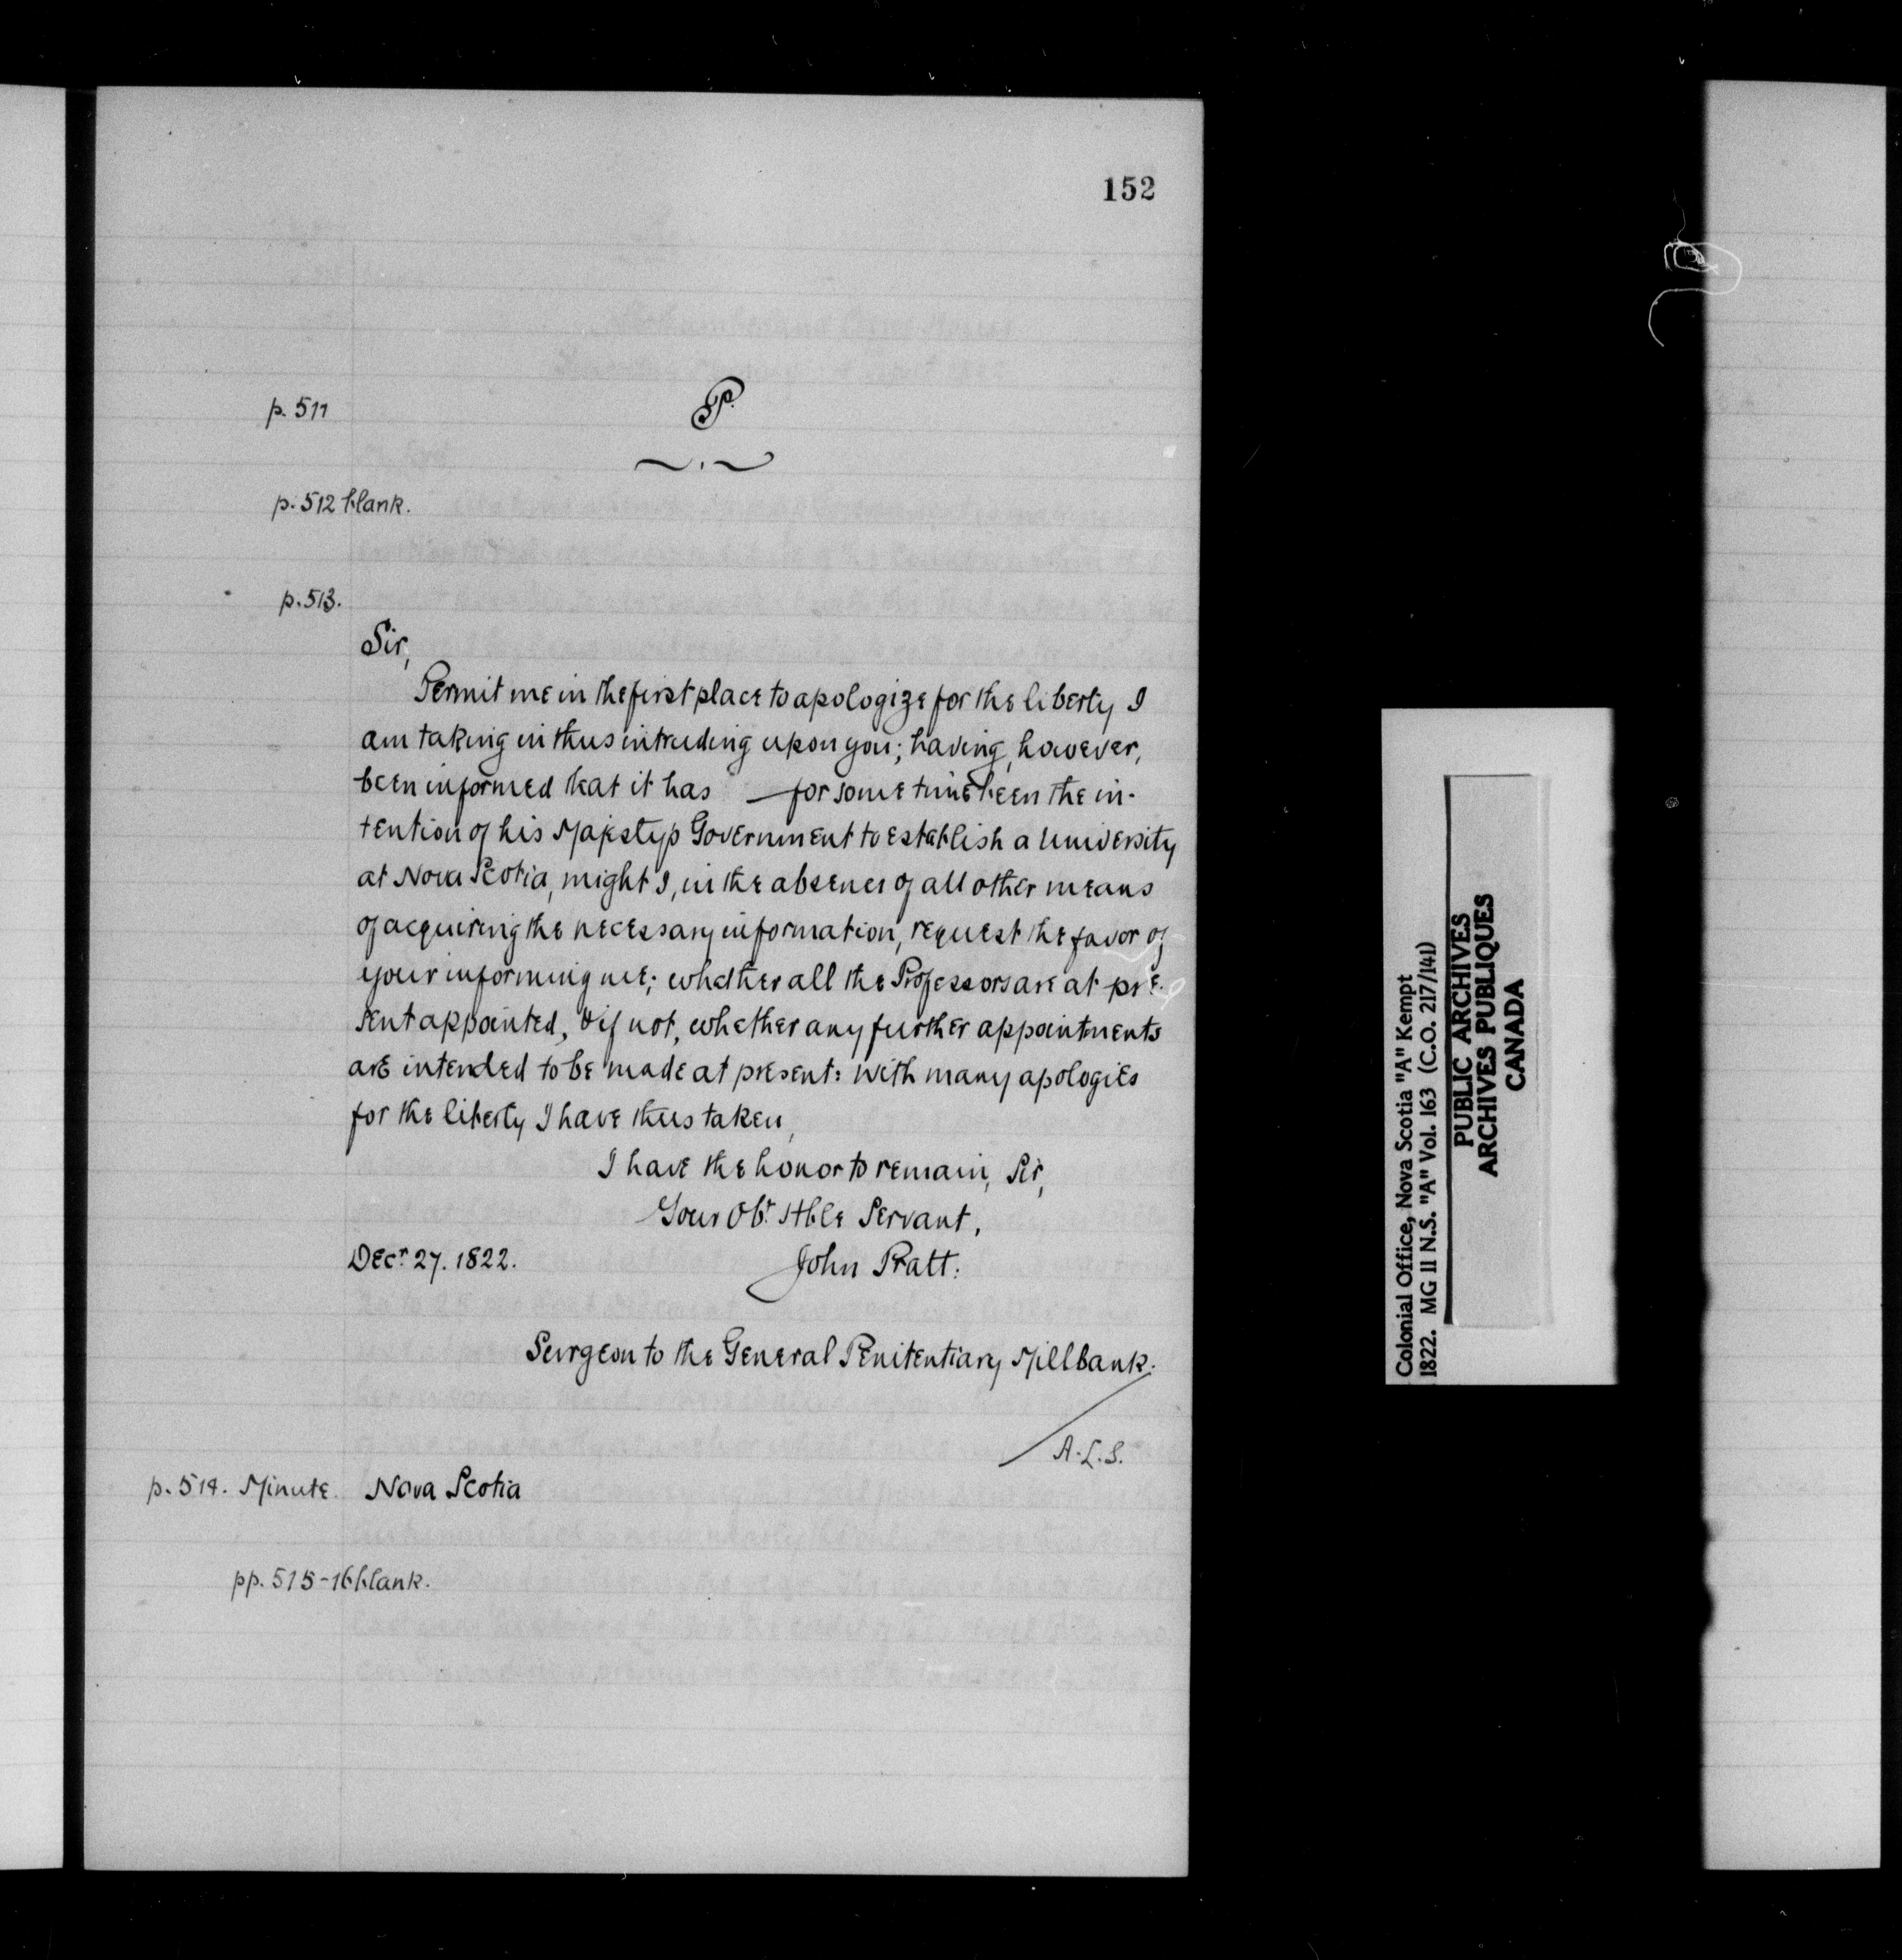 152
p. 511
P.
p. 512 blank.
p. 513.
Sir,
Permit me in the first place to apologize for the liberty I
am taking in thus intruding upon you; having, however,
been informed that it has — for some time been the in-
tention of his Majestys Government to establish a University
at Nova Scotia, might I, in the absence of all other means
of acquiring the necessary information, request the favor of
your informing me; whether all the Professors are at pre-
sent appointed, & if not, whether any further appointments
are intended to be made at present: With many apologies
for the liberty I have thus taken,
I have the honor to remain, Sir,
Your Obt. Hble Servant,
Decr. 27. 1822. John Pratt.
Surgeon to the General Penitentiary Millbank.
A.L.S.
p. 514. Minute. Nova Scotia
pp. 515-16 blank.
Colonial Office, Nova Scotia "A" Kempt
1822. MG 11 N.S. "A" Vol. 163 (C.O. 217/141)
PUBLIC ARCHIVES
ARCHIVES PUBLIQUES
CANADA